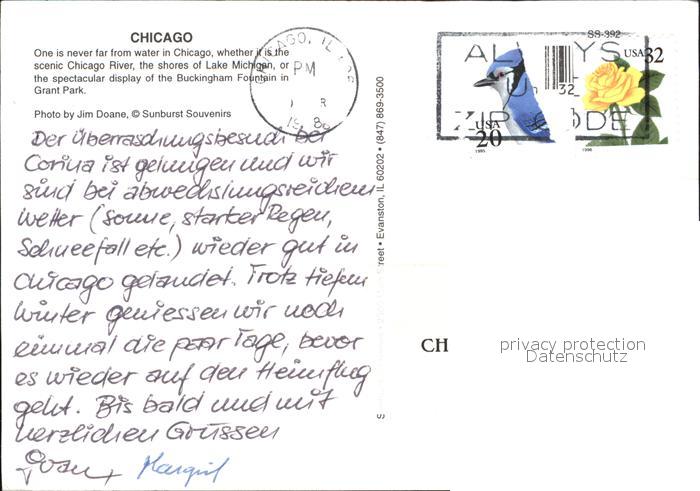 CHICAGO
One is never far from water in Chicago, whether it is the
scenic Chicago River, the shores of Lake Michigan, or
the spectacular display of the Buckingham Fountain in
Grant Park.
Photo by Jim Doane, © Sunburst Souvenirs
Der Überraschungsbesuch bei
Corina ist gelungen und wir
sind bei abwechslungsreichem
Wetter (Sonne, starker Regen,
Schneefall etc.) wieder gut in
Chicago gelandet. Trotz tiefem
Winter geniessen wir noch
einmal die paar Tage, bevor
es wieder auf den Heimflug
geht. Bis bald und mit
herzlichen Grüssen
Margrit
Evanston, IL 60202 • (847) 869-3500
PM
SS-392
ALWAYS
U
ZIP CODE
32
USA
20
1995
USA 32
1996
CH
privacy protection
Datenschutz